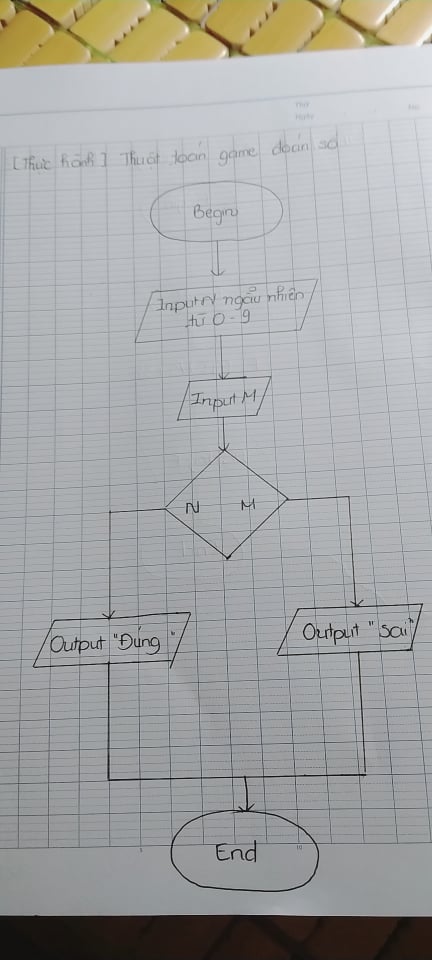 [Thực hành] Thuật toán game đoán số
Begin
Input N ngẫu nhiên
từ 0-9
Input M
N M
Output "Đúng"
Output "Sai"
End